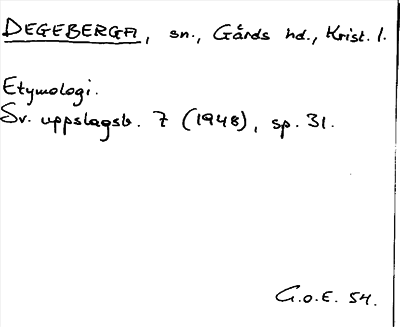 DEGEBERGA, sn., Gärds hd., Krist. l.
Etymologi.
Sv. uppslagsb. 7 (1948), sp. 31.
G.o.E. 54.